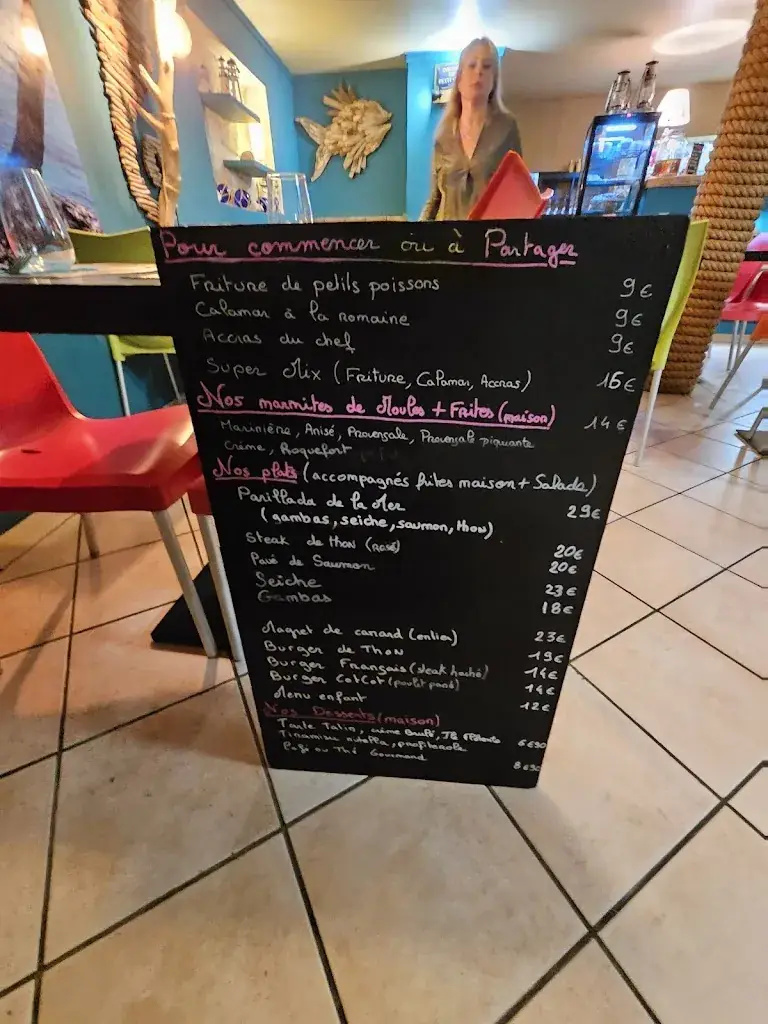 Pour commencer ou à Partager
Friture de petits poissons 9€
Calamar à la romaine 9€
Accras du chef 9€
Super Mix (Friture, Calamar, Accras) 16€
Nos marmites de Moules + Frites (maison) 14€
Marinière, Anisé, Provençale, Provençale piquante
Crème, Roquefort
Nos plats (accompagnés frites maison + Salade)
Parillada de la Mer 29€
(gambas, seiche, saumon, thon)
Steak de thon (rosé) 20€
Pavé de Saumon 20€
Seiche 23€
Gambas 18€
Magret de canard (entier) 23€
Burger de Thon 19€
Burger Français (steak haché) 14€
Burger CotCot (poulet pané) 14€
Menu enfant 12€
Nos Desserts (maison)
Tarte Tatin, crème Brulé, 6€90
Tiramisu nutella, profiterole
Café ou Thé Gourmand 8€90